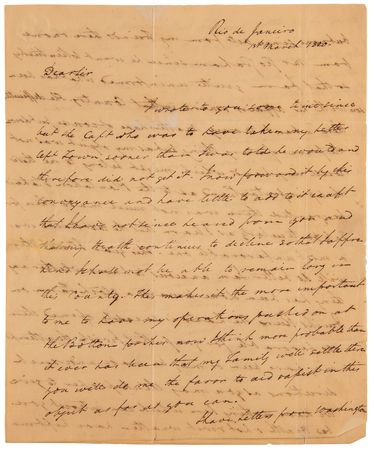 Rio de Janeiro
1st March
Dear Sir
I wrote to you some time since
but the Capt who was to have taken my letter
left Town sooner than I was told he would and
therefore did not get it. I now forward it by this
conveyance and have little to add to it except
that I have not since heard from you and
having Health continues to decline so that I appre
hend I shall not be able to remain long in
this Country. This makes it the more important
to me to have my operations pushed on at
the Bottom for I now think more probable than
it ever has been that my family will settle there
you will do me the favor to aid in this
object as far as you can.
I have letters from Washington